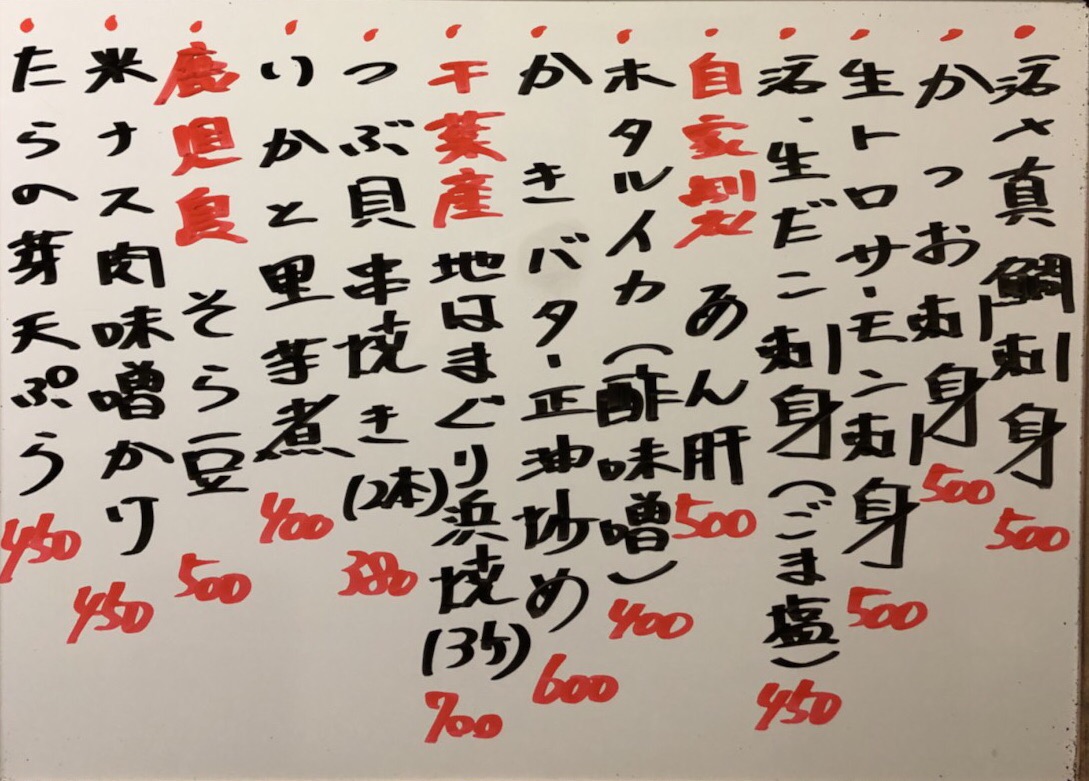 活〆真鯛刺身 500
かつお刺身 500
生トロサーモン刺身 500
活・生だこ刺身(ごま塩) 450
自家製 あん肝 500
ホタルイカ(酢味噌) 400
かきバター正油炒め 600
千葉産 地はまぐり浜焼(3ヶ) 700
つぶ貝串焼き(2本) 380
いかと里芋煮 400
鹿児島 そら豆 500
米ナス肉味噌かけ 450
たらの芽天ぷら 450